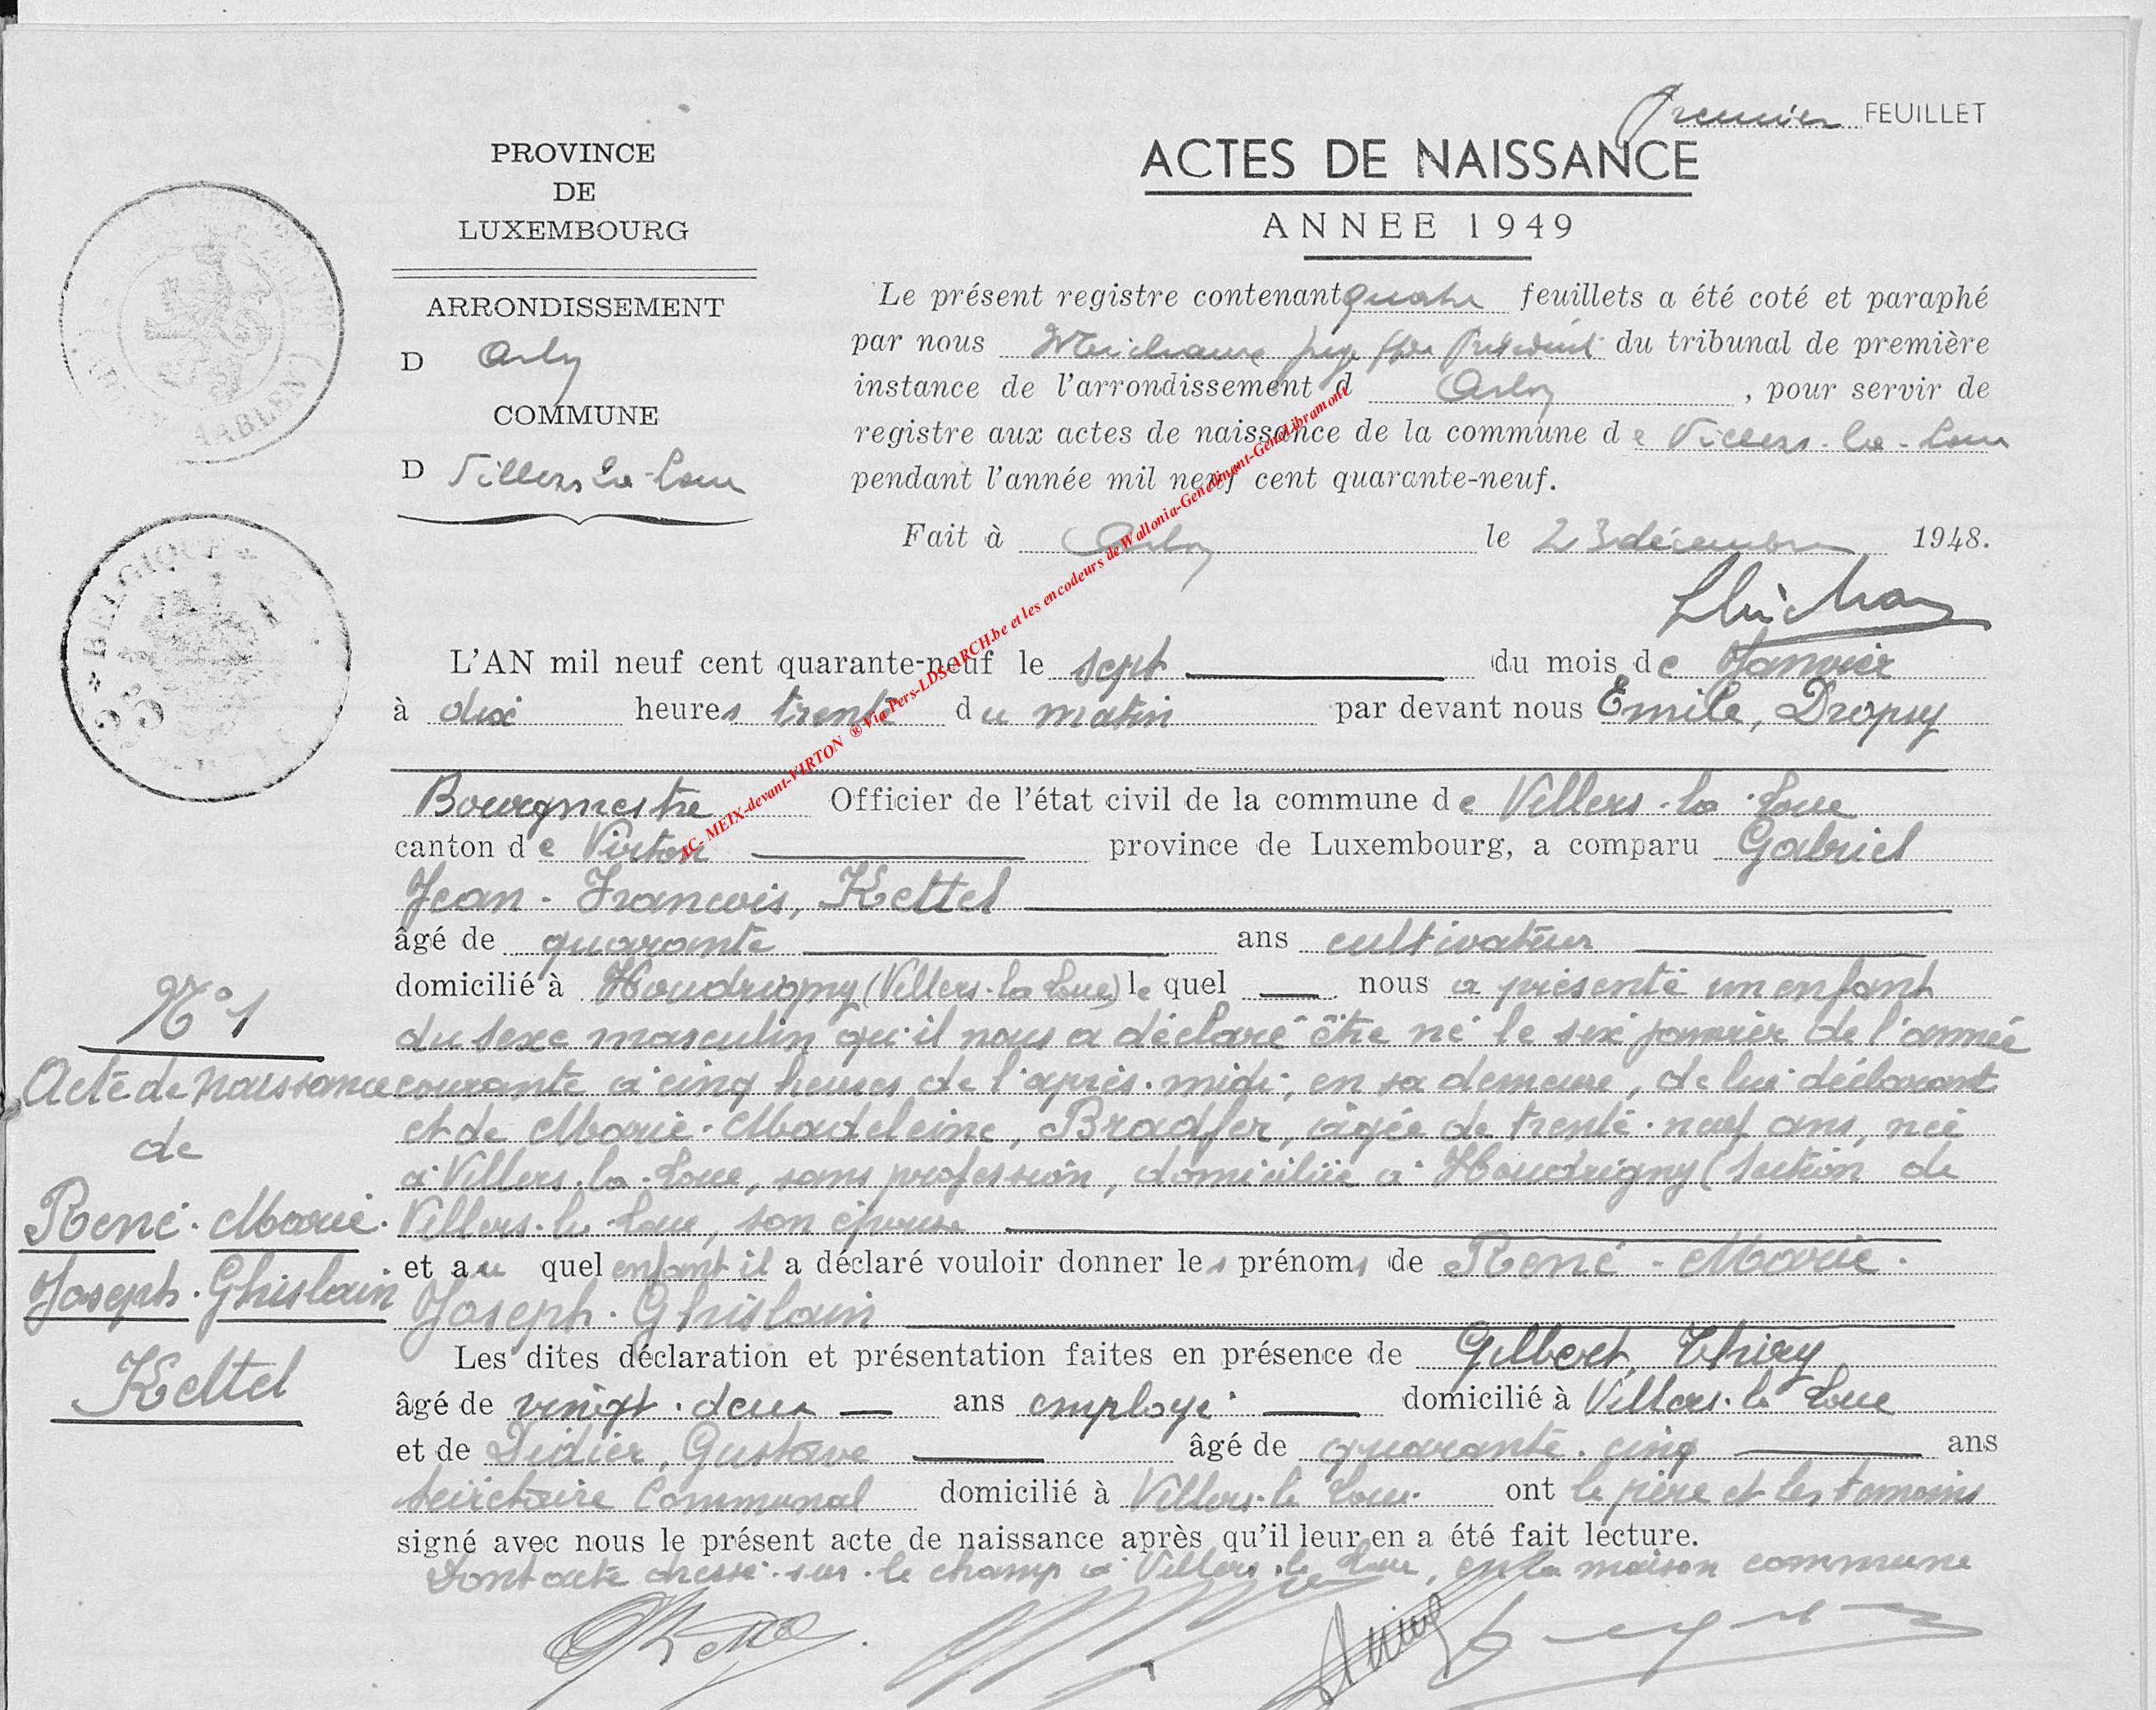 Premier FEUILLET
PROVINCE
DE
LUXEMBOURG
ARRONDISSEMENT
D Arlon
COMMUNE
D Villers-la-Loue
ACTES DE NAISSANCE
ANNEE 1949
Le présent registre contenant quatre feuillets a été coté et paraphé
par nous juge Président du tribunal de première
instance de l'arrondissement d Arlon, pour servir de
registre aux actes de naissance de la commune de Villers-la-Loue
pendant l'année mil neuf cent quarante-neuf.
Fait à Arlon le 23 décembre 1948.
BELGIQUE
L'AN mil neuf cent quarante-neuf le sept du mois de Janvier
à dix heures trente du matin par devant nous Emile, Dropsy
Bourgmestre Officier de l'état civil de la commune de Villers-la-Loue
canton de Virton province de Luxembourg, a comparu Gabriel
Jean-Francois, Kettel
âgé de quarante ans cultivateur
domicilié à Houdrigny (Villers-la-Loue) le quel nous a présenté un enfant
du sexe masculin qu'il nous a déclaré être né le six janvier de l'année
courante à cinq heures de l'après-midi, en sa demeure, de lui déclarant
et de Marie-Madeleine, Bradfer, âgée de trente-neuf ans, née
à Villers-la-Loue, sans profession, domiciliée à Houdrigny (section de
Villers-la-Loue, son épouse
et au quel enfant il a déclaré vouloir donner les prénoms de René-Marie-
Joseph-Ghislain
Les dites déclaration et présentation faites en présence de Gilbert, Thiry
âgé de vingt-deux ans employé domicilié à Villers-la-Loue
et de Didier, Gustave âgé de quarante-cinq ans
secrétaire Communal domicilié à Villers-la-Loue ont le père et les temoins
signé avec nous le présent acte de naissance après qu'il leur en a été fait lecture.
Dont acte dressé sur-le champ à Villers-la-Loue, en la maison commune
N° 1
Acte de naissance
de
René-Marie-
Joseph-Ghislain
Kettel
AC- MEIX-devant-VIRTON ® Via Pers-LDS-ARCH.be et les encodeurs de Wallonia-Genedinant-GeneLibramont